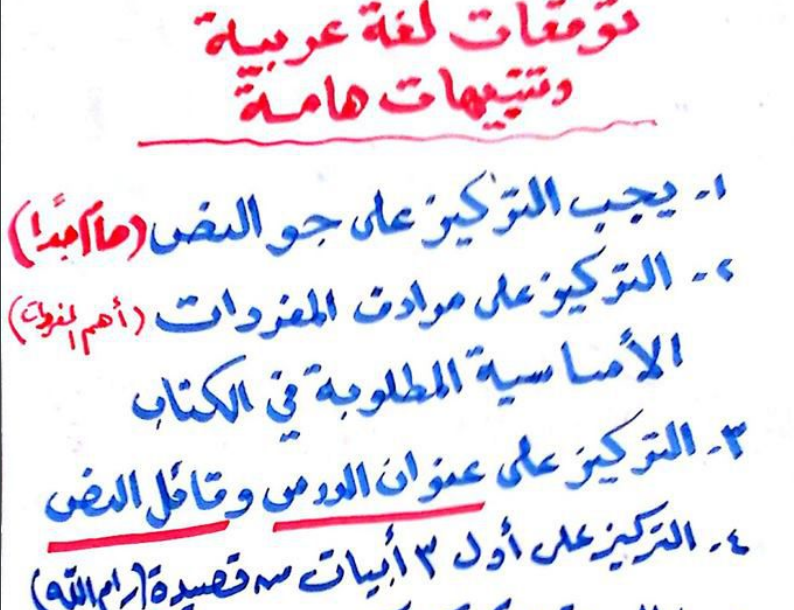 توقعات لغة عربية
وتنبيهات هامة
١- يجب التركيز على جو النص (هام جدًا)
٢- التركيز على مرادف المفردات (أهم المفردات)
الأساسية المطلوبة في الكتاب
٣- التركيز على عنوان الدرس وقائل النص
٤- التركيز على أول ٣ أبيات من قصيدة (رام الله)